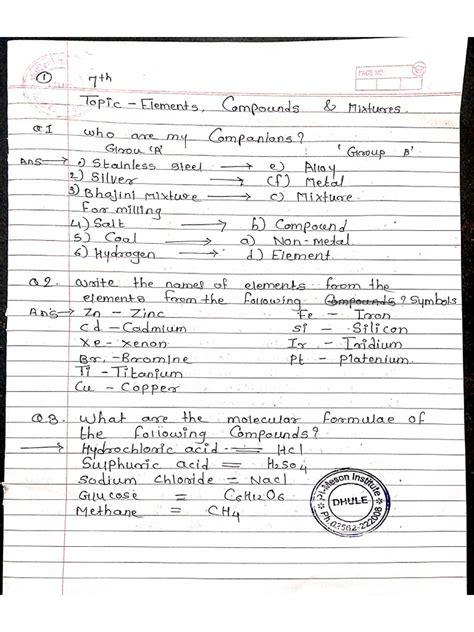 PAGE NO.
① 7th
Topic - Elements, Compounds & Mixtures
Q1 who are my Companions?
Girou 'A' 'Girroup B'
Ans → 1) Stainless steel → e) Alloy
2) Silver → (f) Metal
3) Bhajini Mixture → c) Mixture
For milling
4) Salt → b) Compound
5) Coal → a) Non-metal
6) Hydrogen → d) Element
Q2. write the names of elements from the
elements from the following Compounds? Symbols
Ans → Zn - Zinc Fe - Iron
Cd - Cadmium Si - Silicon
Xe - Xenon Ir - Iridium
Br - Bromine Pt - Platenium
Ti - Titanium
Cu - Copper
Q.3. What are the molecular formulae of
the following Compounds?
→ Hydrochloric acid = HCl
Sulphuric acid = H2SO4
Sodium Chloride = NaCl
Glucose = C6H12O6
Methane = CH4
Pi-Meson Institute
DHULE
Ph. 02562-222008